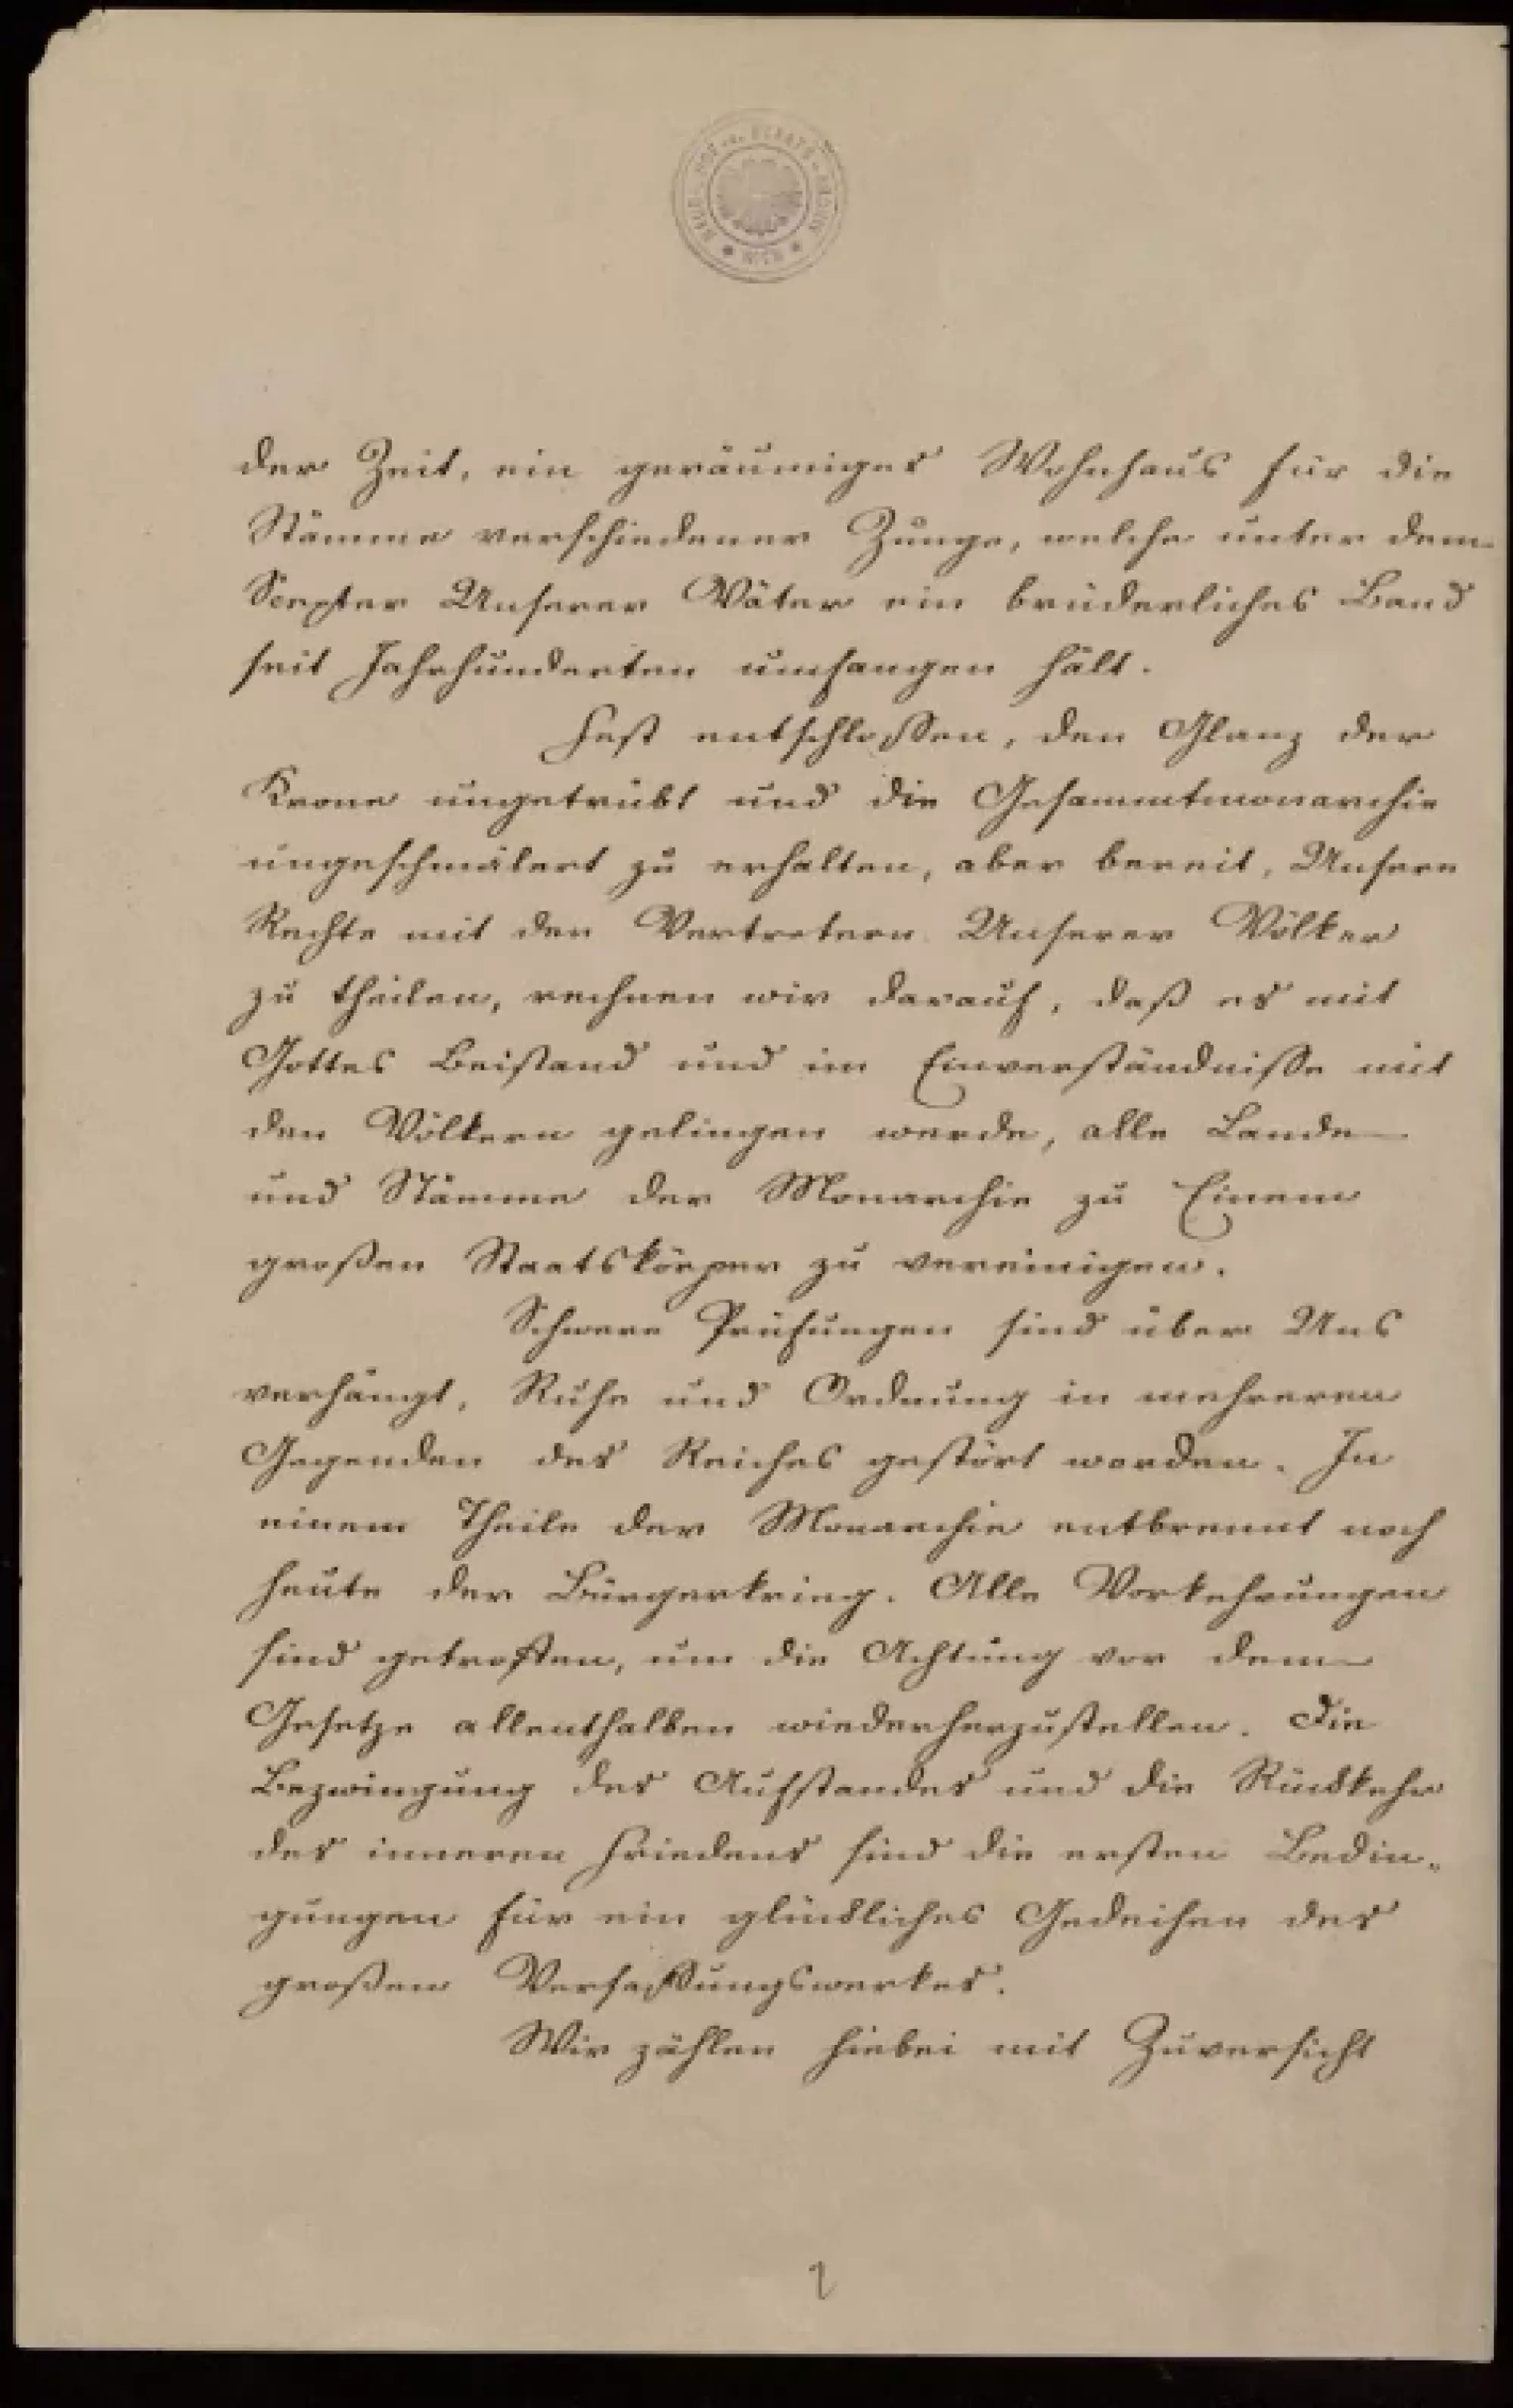 HAUS-, HOF- u. STAATS-ARCHIV * WIEN *
der Zeit, ein geräumiges Wohnhaus für die
Stämme verschiedener Zunge, welche unter dem
Scepter Unserer Väter ein brüderliches Band
seit Jahrhunderten umfangen hält.
Fest entschlossen, den Glanz der
Krone ungetrübt und die Gesammtmonarchie
ungeschmälert zu erhalten, aber bereit, Unsere
Rechte mit den Vertretern Unserer Völker
zu theilen, rechnen wir darauf, daß es mit
Gottes Beistand und im Einverständnisse mit
den Völkern gelingen werde, alle Lande
und Stämme der Monarchie zu Einem
großen Staatskörper zu vereinigen.
Schwere Prüfungen sind über Uns
verhängt, Ruhe und Ordnung in mehreren
Gegenden des Reiches gestört worden. In
einem Theile der Monarchie entbrennt noch
heute der Bürgerkrieg. Alle Vorkehrungen
sind getroffen, um die Achtung vor dem
Gesetze allenthalben wiederherzustellen. Die
Bezwingung des Aufstandes und die Rückkehr
des inneren Friedens sind die ersten Bedin-
gungen für ein glückliches Gedeihen des
großen Verfassungswerkes.
Wir zählen hiebei mit Zuversicht